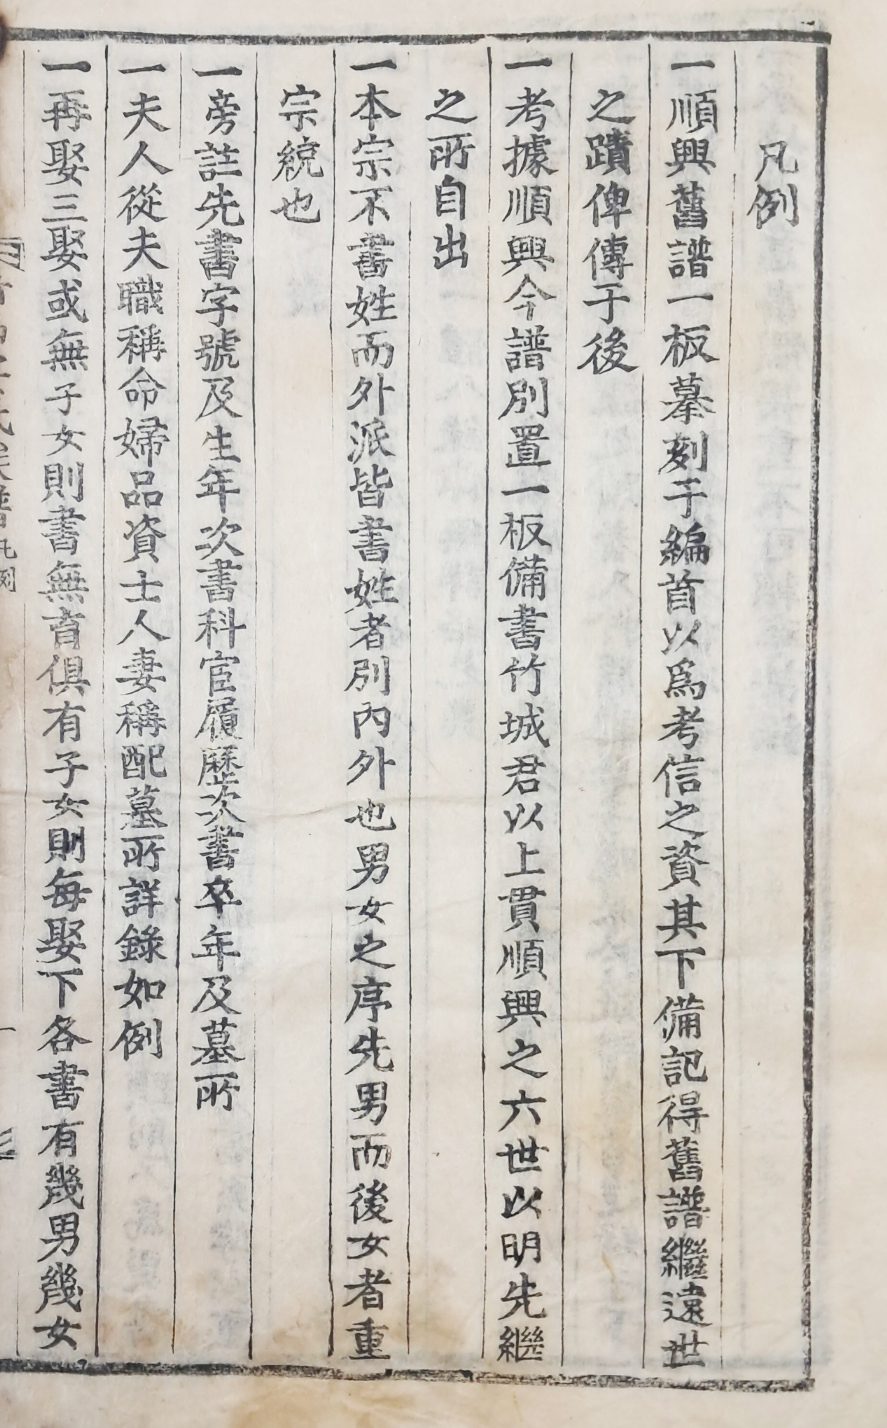 凡例
一順興舊譜一板摹刻于編首以爲考信之資其下備記得舊譜繼遠世
之蹟俾傳于後
一考據順興今譜別置一板備書竹城君以上貫順興之六世以明先繼
之所自出
一本宗不書姓而外派皆書姓者別內外也男女之序先男而後女者重
宗統也
一旁註先書字號及生年次書科宦履歷次書卒年及墓所
一夫人從夫職稱命婦品資士人妻稱配墓所詳錄如例
一再娶三娶或無子女則書無育俱有子女則每娶下各書有幾男幾女
凡例